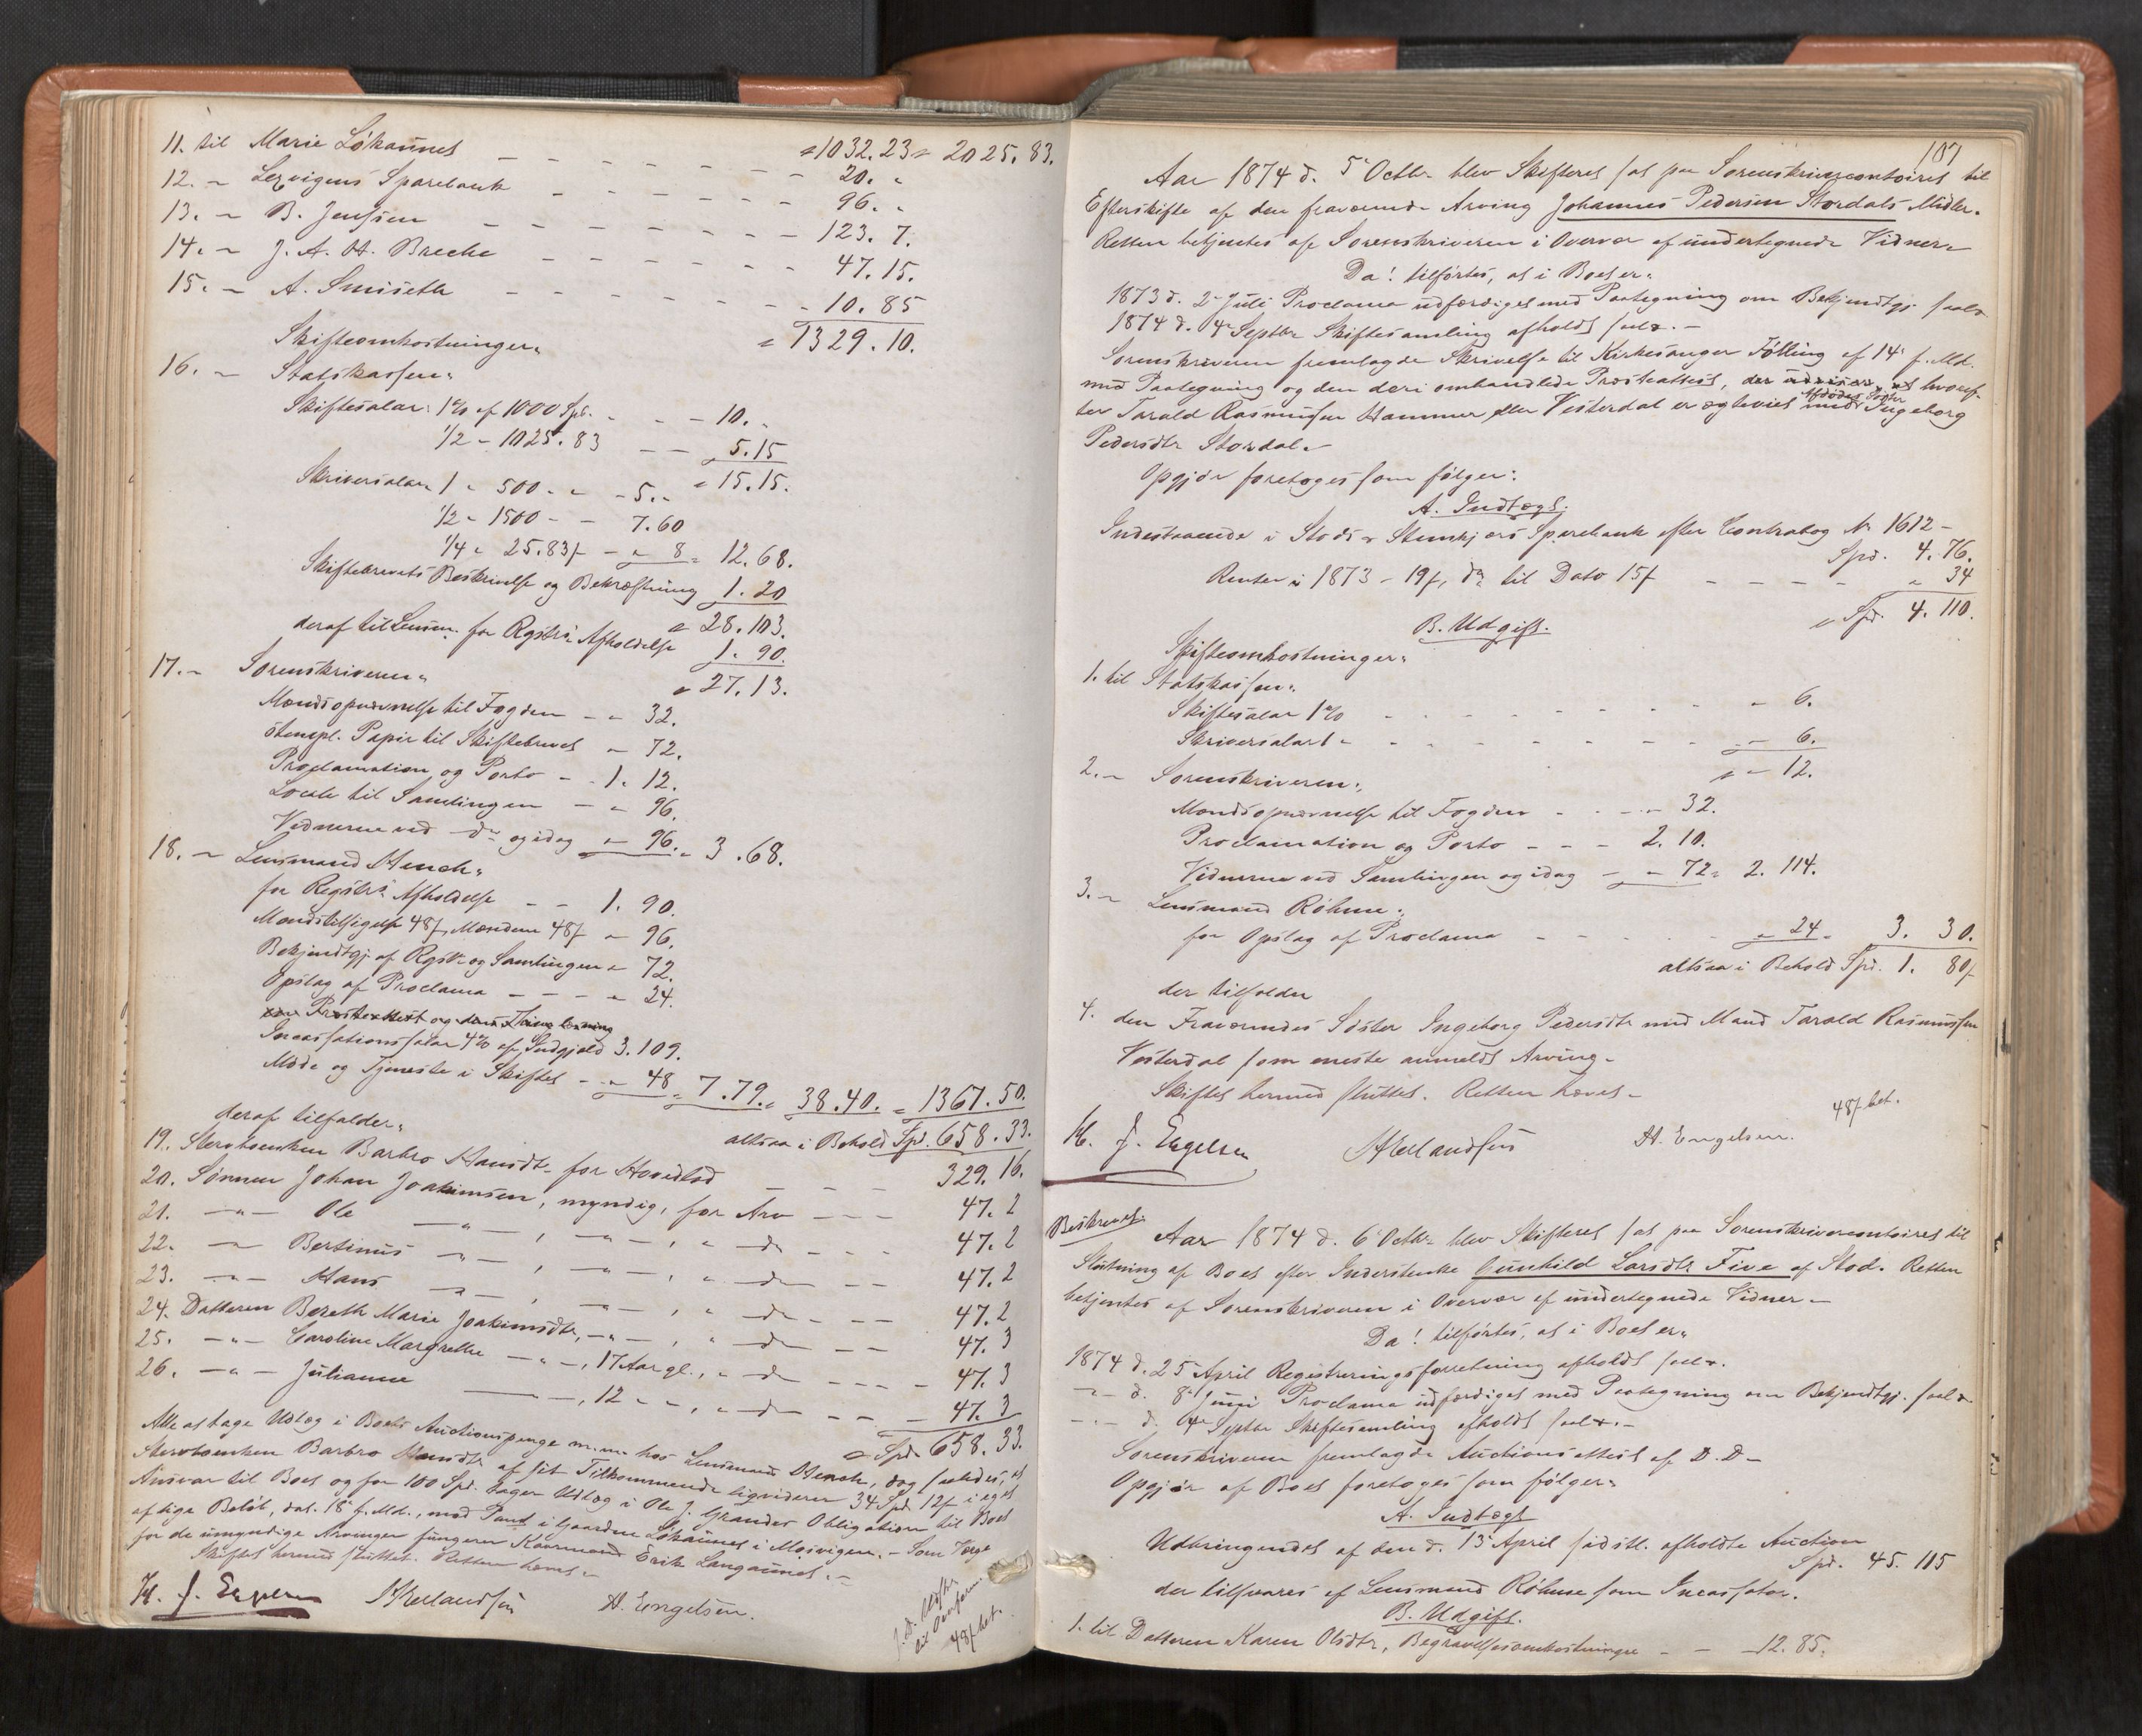 11. til Marie Løkaunet — — — — — — " 1032. 23 " 2025. 83.
12. " Lexvigens Sparebank — — — — — — 20. "
13. " B. Jenssen — — — — — — — 96. "
14. " J. A. H. Brecke — — — — — — 123. 7.
15. " A. Smiseth — — — — — — 47. 15.
- 10. 85
Skifteomkostninger: " 1329. 10.
16. " Statskassen:
Skiftesalar: 1% af 1000 Spd. - - - 10. "
1/2 - 1025. 83 - - - 5. 15
" 15. 15.
Skriversalar 1 " 500. " - 5. "
1/2 - 1500 - - 7. 60
1/4 " 25. 83 f - " 8 " 12. 68.
Skiftebrevets Beskrivelse og Bekræftning 1. 20
" 28. 103.
deraf til Lensm. for Rgstrs Afholdelse 1. 90.
" 27. 13.
17. " Sorenskriveren:
Mændsopnævnelse til Fogden - " 32.
Stempl. Papir til Skiftebrevet " 72.
Proclamation og Porto - - 1. 12.
Locale til Samlingen - " 96.
Vidnerne ved do og idag " 96. " 3. 68.
18. " Lensmand Hench:
for Registrs Afholdelse - - 1. 90.
Mændstilsigelse 48 f, Mændene 48 f " 96.
Bekjendtgj. af Rgstr. og Samlingen " 72.
Opslag af Proclama - - - " 24.
Incassationssalar 4% af Indgjæld 3. 109.
Møde og Tjeneste i Skiftet - " 48 " 7. 79. " 38. 40. " 1367. 50.
altsaa i Behold Spd. 658. 33.
deraf tilfalder:
19. Stervboenken Barbro Hansdtr for Hovedlod - - - 329. 16.
20. Sønnen Johan Joakimsen, myndig, for Arv - - - 47. 2
21. —"— Ole —"— , —"— , " do - - - 47. 2
22. —"— Bertinus —"— , —"— , " do - - - 47. 2
23. —"— Hans —"— , —"— , " do - - - 47. 2
24. Datteren Bereth Marie Joakimsdtr, —"— , " do - - 47. 3
25. —"— Caroline Margrethe —"— , 17 Aar gl., " do - - - 47. 3
26. —"— Julianne — — , 12 " " , " do - - - 47. 3
" Spd. 658. 33.
Alle at tage Udlæg i Boets Auctionspenge m. m. hos Lensmand Hench, dog saaledes, at
Stervboenken Barbro Hansdtr af sit Tilkommende liqviderer 34 Spd. 12 f i eget
Ansvar til Boet og for 100 Spd. tager Udlæg i Ole J. Grandes Obligation til Boet
af lige Beløb, dat. 18 f. Md., med Pant i Gaarden Løkaunet i Mosvigen. - Som Værge
for de umyndige Arvinger fungerer Kaarmand Erik Langaunet. -
Skiftet hermed sluttet. Retten hævet -
J. Engelsen H. Engelsen.
48 f bet.
107
Aar 1874 d. 5 Octbr. blev Skifteret sat paa Sorenskrivercontoiret til
Efterskifte af den fraværende Arving Johannes Pedersen Stordals Midler.
Retten betjentes af Sorenskriveren i Overvær af undertegnede Vidner.
Da! tilførtes, at i Boet er:
1873 d. 2 Juli Proclama udfærdiget med Paategning om Bekjendtgj. saal.
1874 d. 4 Septbr Skiftesamling afholdt saal. -
Sorenskriveren fremlagde Skrivelse til Kirkesanger Følling af 14 f. Md.
med Paategning og den deri omhandlede Præsteattest, der udviser, at hvoref-
ter Tarald Rasmussen Hammer eller Vesterdal er ægteviet med Afdødes Søster Ingeborg
Pedersdtr Stordal. -
Opgjør foretoges som følger:
A. Indtægt.
Indestaaende i Stods & Stenkjærs Sparebank efter Contrabog No 1612 -
Spd. 4. 76.
Renter i 1873 - 19 f, do til Dato 15 f - - - - " 34
" Spd. 4. 110.
B. Udgift.
Skifteomkostninger:
1. til Statskassen:
Skiftesalar 1% - - - - - - - " 6.
Skriversalar 1 " - - - - - - - " 6.
" " 12.
2. " Sorenskriveren:
Mændsopnævnelse til Fogden - - - " 32.
Proclamation og Porto - - - 2. 10.
Vidnerne ved Samlingen og idag - " 72 " 2. 114.
3. " Lensmand Røhme:
for Opslag af Proclama - - - - " 24 " 3. 30.
altsaa i Behold Spd. 1. 80 f
der tilfalder
4. den Fraværendes Søster Ingeborg Pedersdtr med Mand Tarald Rasmussen
Vesterdal som eneste anmeldt Arving -
Skiftet hermed sluttet. Retten hævet -
48 f bet.
J. Engelsen H. Engelsen.
Beskrevet.
Aar 1874 d. 6 Octbr blev Skifteret sat paa Sorenskrivercontoiret til
Slutning af Boet efter Inderstenke Gunhild Larsdtr Five af Stod. Retten
betjentes af Sorenskriveren i Overvær af undertegnede Vidner -
Da! tilførtes, at i Boet er:
1874 d. 25 April Registreringsforretning afholdt saal.
— " — d. 8 Juni Proclama udfærdiget med Paategning om Bekjendtgj. saal.
— " — d. 4 Septbr Skiftesamling afholdt saal. -
Sorenskriveren fremlagde Auctionsattest af D. D. -
Opgjør af Boet foretoges som følger:
A. Indtægt
Udbringendet af den d. 13 April sidstl. afholdte Auction
Spd. 45. 115
der tilsvares af Lensmand Røhme som Incassator.
B. Udgift.
1. til Datteren Karen Olsdtr, Begravelsesomkostninger - - - 12. 85.